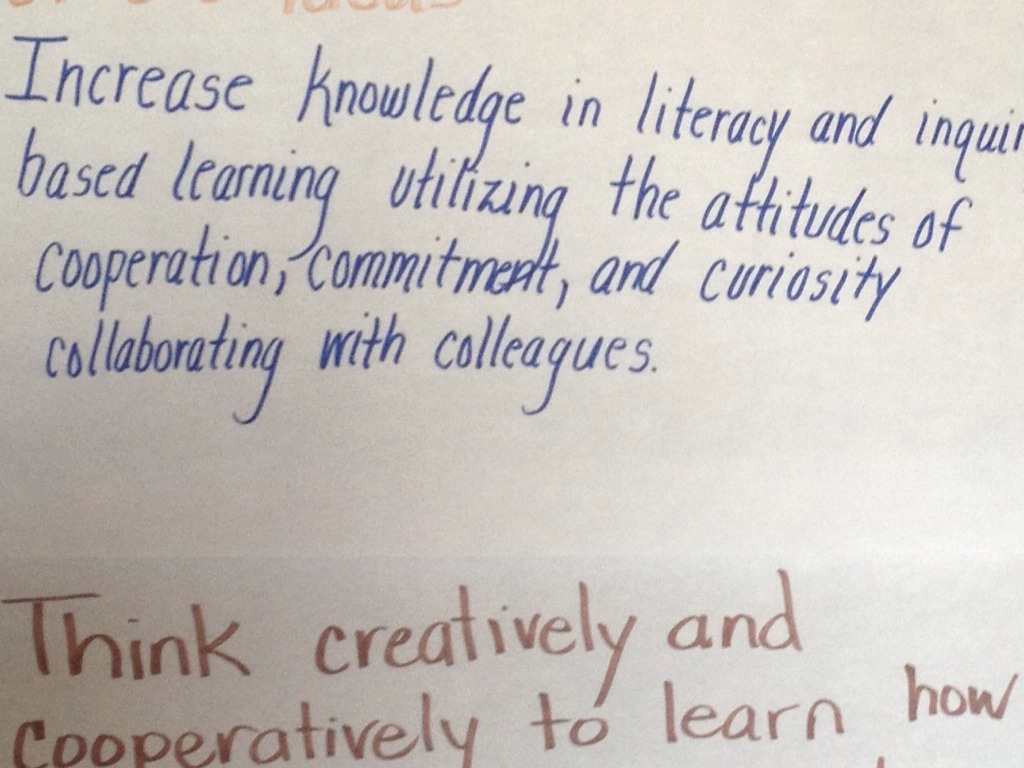 ideas
Increase knowledge in literacy and inquir
based learning utilizing the attitudes of
cooperation, commitment, and curiosity
collaborating with colleagues.
Think creatively and
cooperatively to learn how